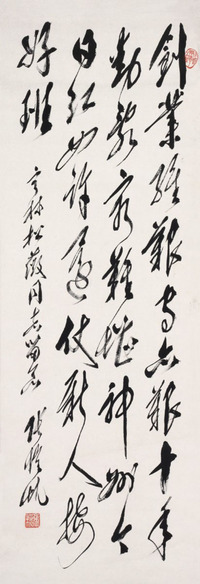 創業維艱守亦艱十年
動亂難堪神州今
日紅如許還仗新人接
好班
松同志留念 張愷帆